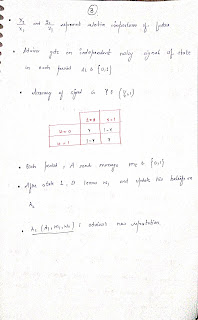 3
x₂/x₁ and y₂/y₁ represent relative importance of future
• Advisor gets an independent noisy signal of state
in each period s_t ∈ {0,1}
• Accuracy of signal is γ ∈ (½,1)
s=0 s=1
γ 1-γ
1-γ γ
• Each period, A sends message m_t ∈ {0,1}
• After state 1, D learns and update his beliefs on
λ₂
• is advisor's new reputation